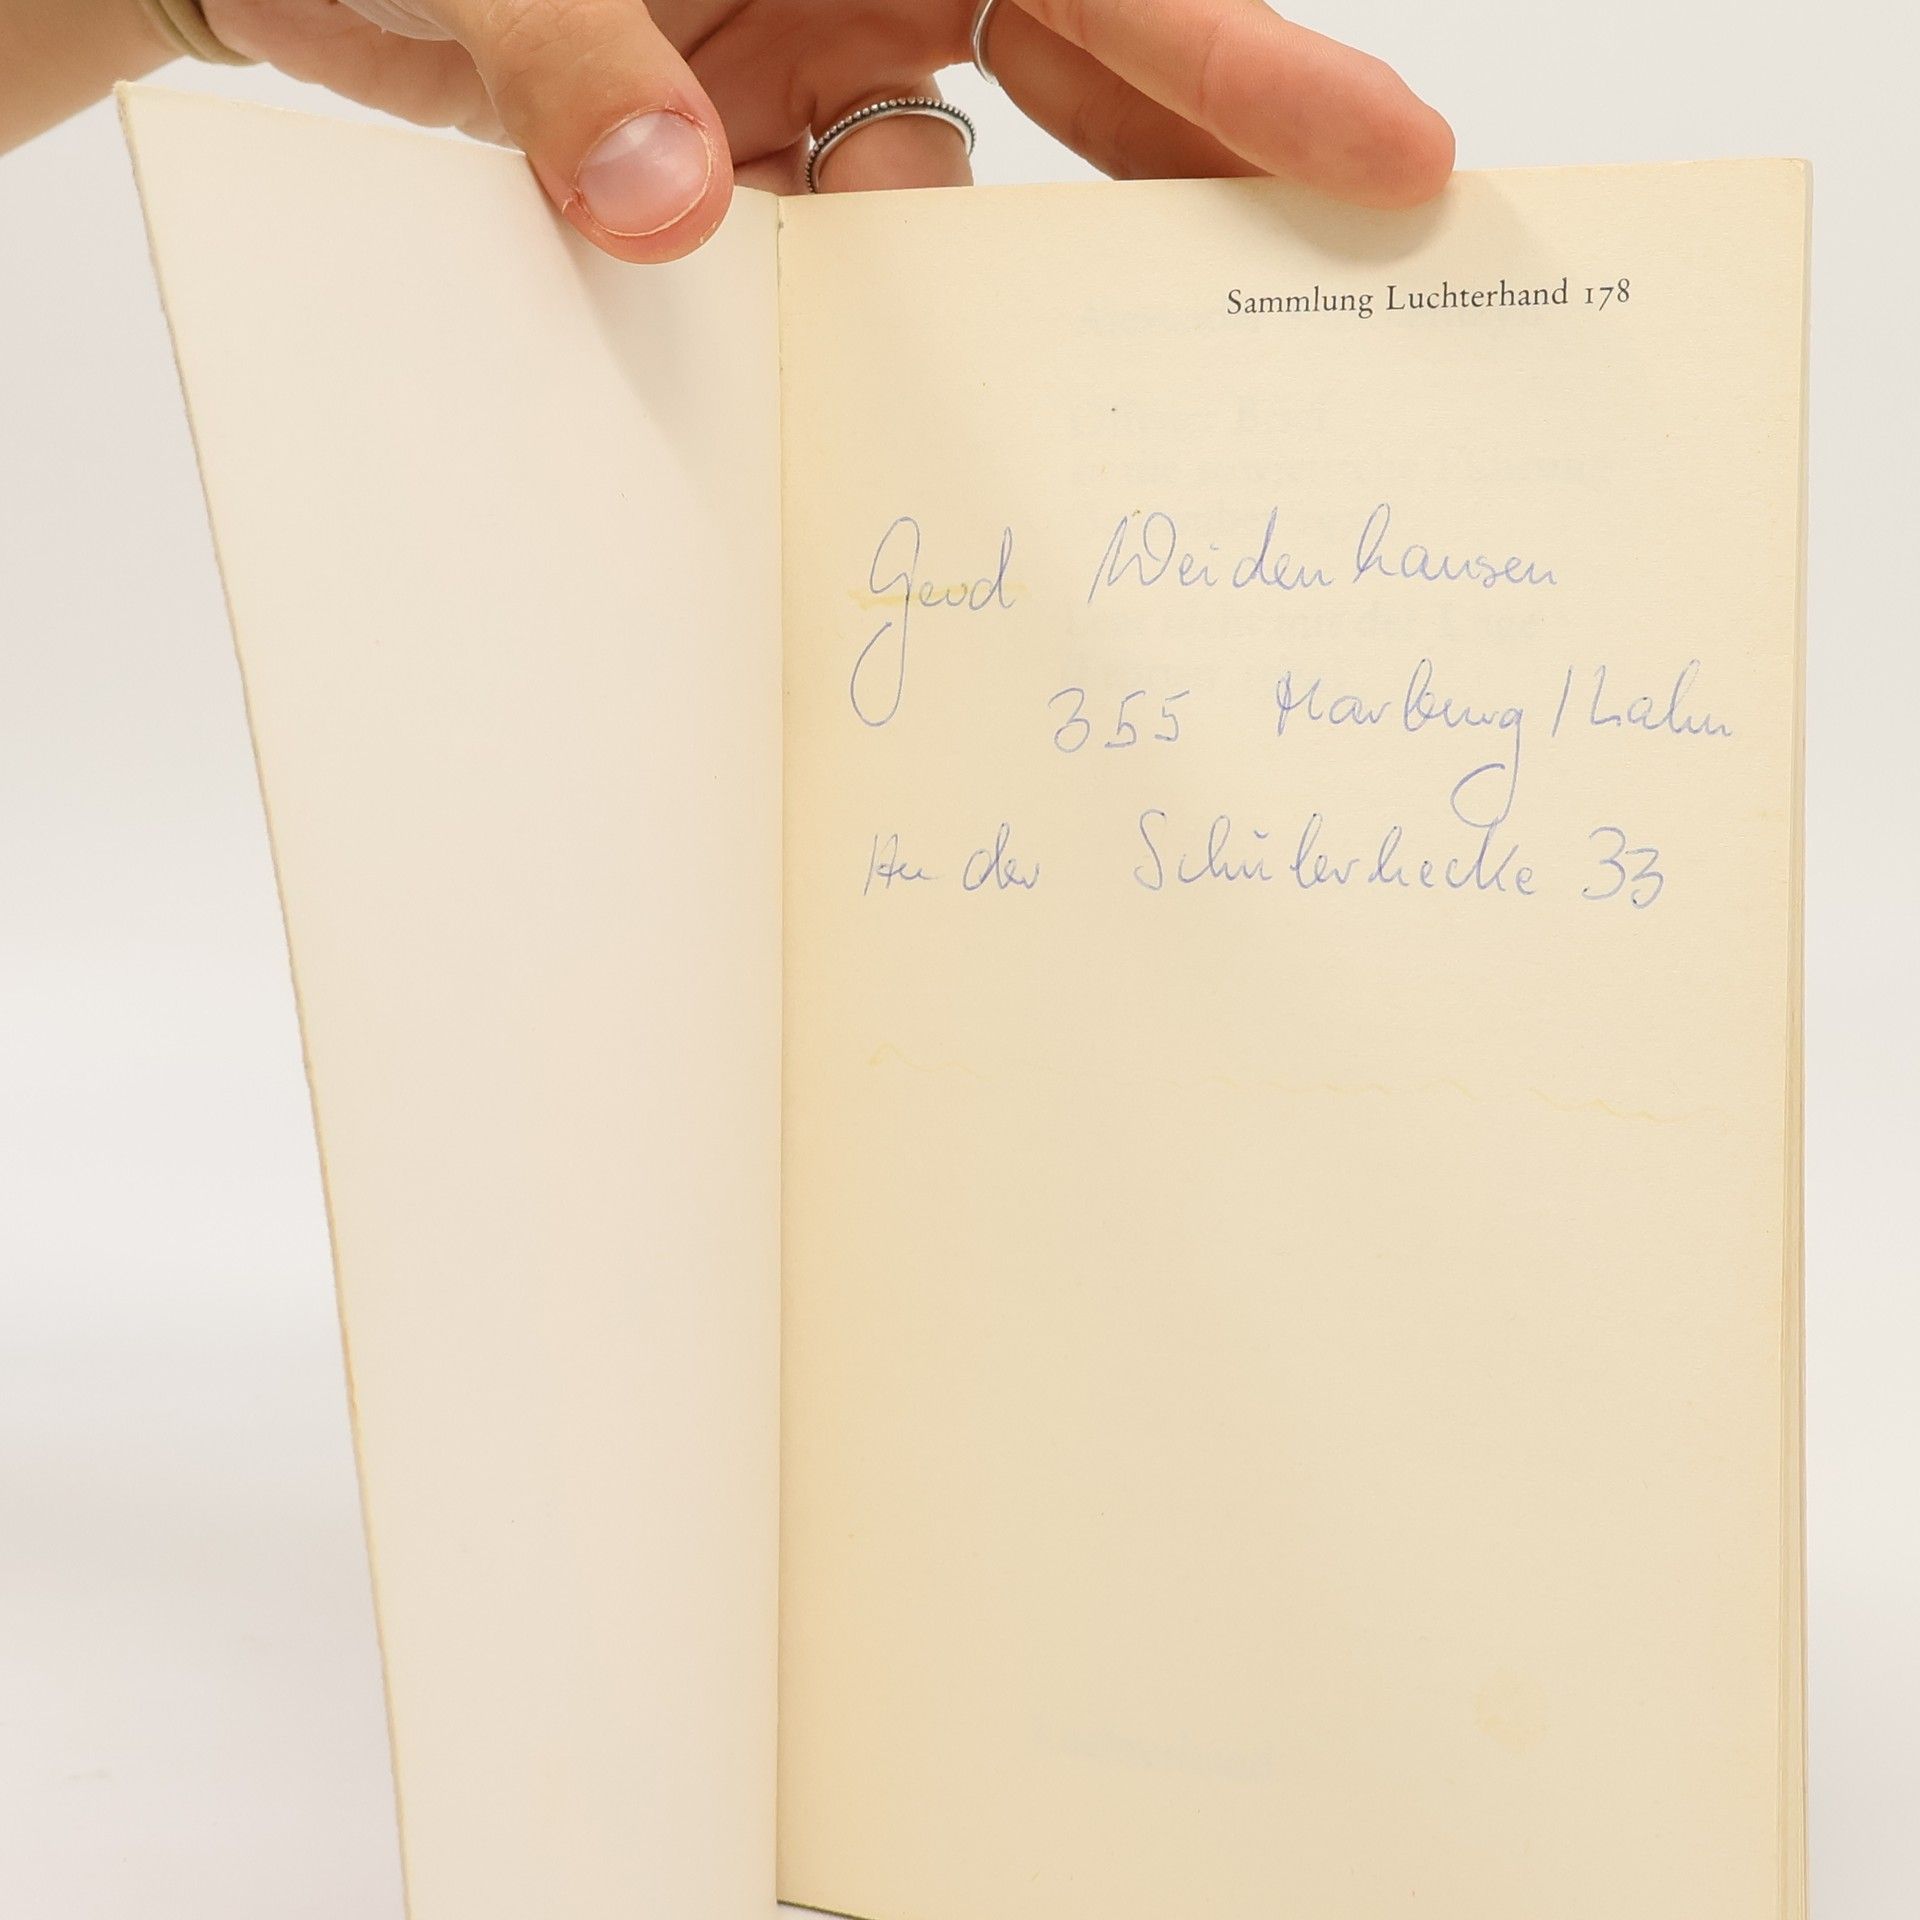 Sammlung Luchterhand 178
Gerd Weidenhausen
355 Marburg / Lahn
An der Schülerhecke 33